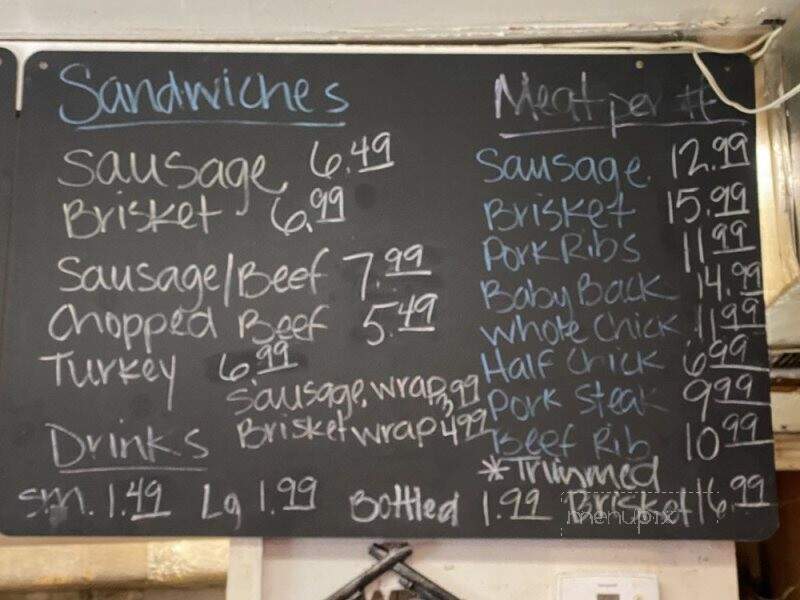 Sandwiches
Sausage 6.49
Brisket 6.99
Sausage/Beef 7.99
Chopped Beef 5.49
Turkey 6.99
Sausage wrap 3.99
Brisket wrap 4.99
Drinks
Sm. 1.49 Lg 1.99 Bottled 1.99
Meat per #
Sausage 12.99
Brisket 15.99
Pork Ribs 11.99
Baby Back 14.99
Whole Chick 11.99
Half Chick 6.99
Pork Steak 9.99
Beef Rib 10.99
*Trimmed
Brisket 16.99
menupix